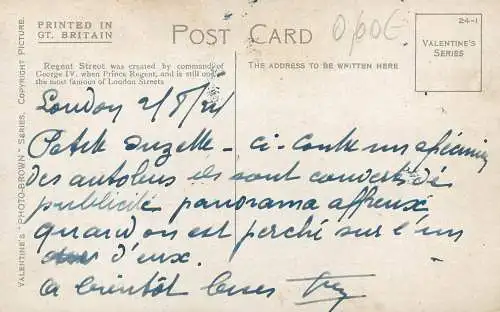 PRINTED IN
GT. BRITAIN
POST CARD
0,00€
24-1
VALENTINE'S
SERIES
Regent Street was created by command of
George IV, when Prince Regent, and is still one
the most famous of London Streets
THE ADDRESS TO BE WRITTEN HERE
VALENTINE'S "PHOTO-BROWN" SERIES. COPYRIGHT PICTURE.
London 2/8/24
Petite Suzette - ci-contre un spécimen
des autobus ils sont couverts de
publicité panorama affreux
quand on est perché sur l'un
d'eux.
a bientôt